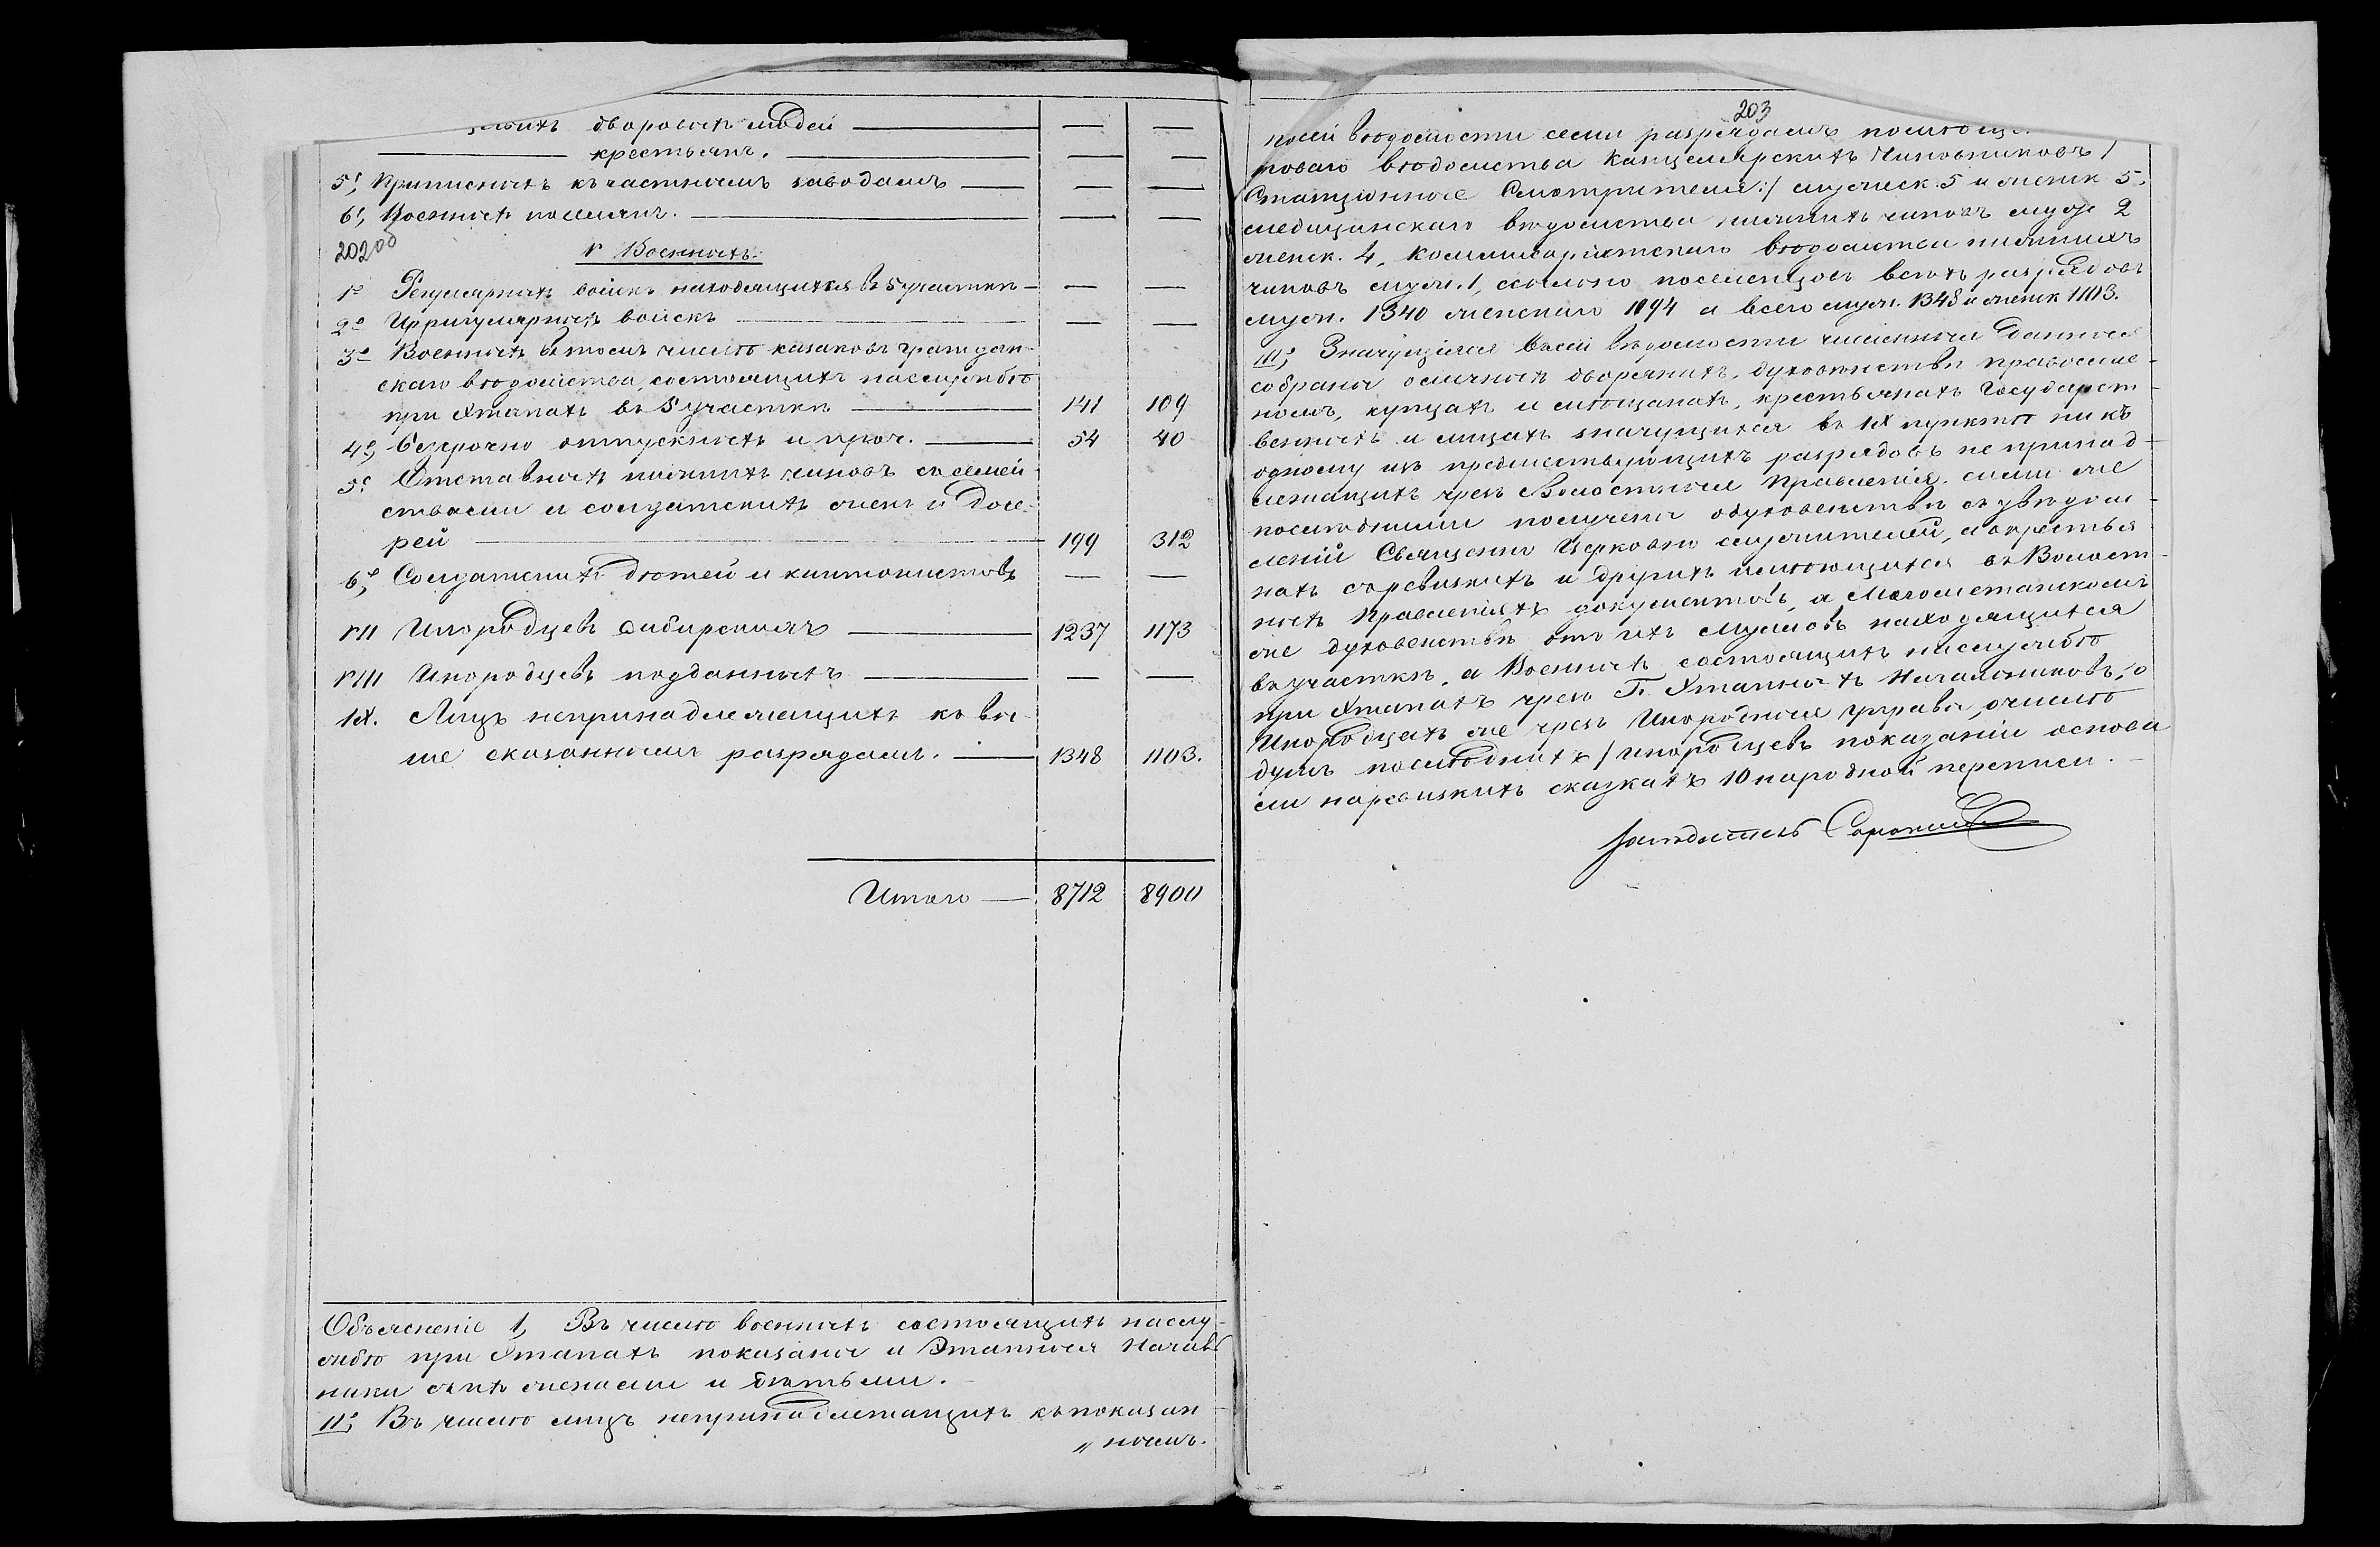 дворовыхъ людей — —
крестьянъ. — —
5., Приписныхъ къ частнымъ заводамъ — —
6., Военныхъ поселянъ. — —
202об
V Военныхъ.
1е Регулярныхъ войскъ находящихся въ 5 участкѣ — —
2е Иррегулярныхъ войскъ — —
3е Военныхъ въ томъ числѣ казаковъ граждан-
скаго вѣдомства, состоящихъ на службѣ
при Этапахъ въ 5 участкѣ 141 109
4е, безсрочно отпускныхъ и проч. 54 40
5е Отставныхъ нижнихъ чиновъ съ семей-
ствами и солдатскихъ женъ и доче-
рей 199 312
6е, Солдатскихъ дѣтей и кантонистовъ — —
VII Инородцевъ сибирскихъ 1237 1173
VIII Инородцевъ подданныхъ — —
IX. Лицъ непринадлежащихъ къ вы-
ше сказаннымъ разрядамъ. 1348 1103.
Итого — 8712 8900
Объясненіе 1, Въ числѣ военныхъ состоящихъ на слу-
жбѣ при Этапахъ показаны и Этапные Началь
ники съ ихъ женами и дѣтьми.
II, Въ числѣ лицъ непринадлежащихъ къ показан
„нымъ.
203
сей вѣдомости семи разрядамъ
вѣдомства Канцелярскихъ Чиновниковъ /
Станціонные Смотрители:/ мужеск. 5 и женск 5.
медицинскаго вѣдомства нижнихъ чиновъ муж 2
женск. 4, Коммисаріатскаго вѣдомства нижнихъ
чиновъ муж. 1, ссыльно поселенцовъ всѣхъ разрядовъ
муж. 1340 женскаго 1094 а всего муж. 1348 и женск 1103.
III, Значущіяся въ сей вѣдомости численныя данныя
собраны о личныхъ дворянахъ, духовенствѣ православ-
номъ, купцахъ и мѣщанахъ, крестьянахъ Государст-
венныхъ и лицахъ значущихся въ IX пунктѣ ни къ
одному изъ предшествующихъ разрядовъ не принад-
лежащихъ чрезъ Волостныя Правленія, сими же
послѣдними получены о духовенствѣ съ увѣдом-
леній Священно Церковно служителей, а о крестья
нахъ съ ревизкихъ и другихъ имѣющихся въ Волост-
ныхъ Правленіяхъ документовъ, а Магометанскомъ
же духовенствѣ отъ ихъ Муллъ находящихся
въ участкѣ, а Военныхъ состоящихъ на службѣ
при Этапахъ чрезъ Г. Этапныхъ Начальниковъ, о
Инородцахъ же чрезъ Инородныя управы, о числѣ
душъ послѣднихъ / инородцевъ показаніи основа
ли на ревизкихъ сказкахъ 10 народной переписи.
Засѣдатель